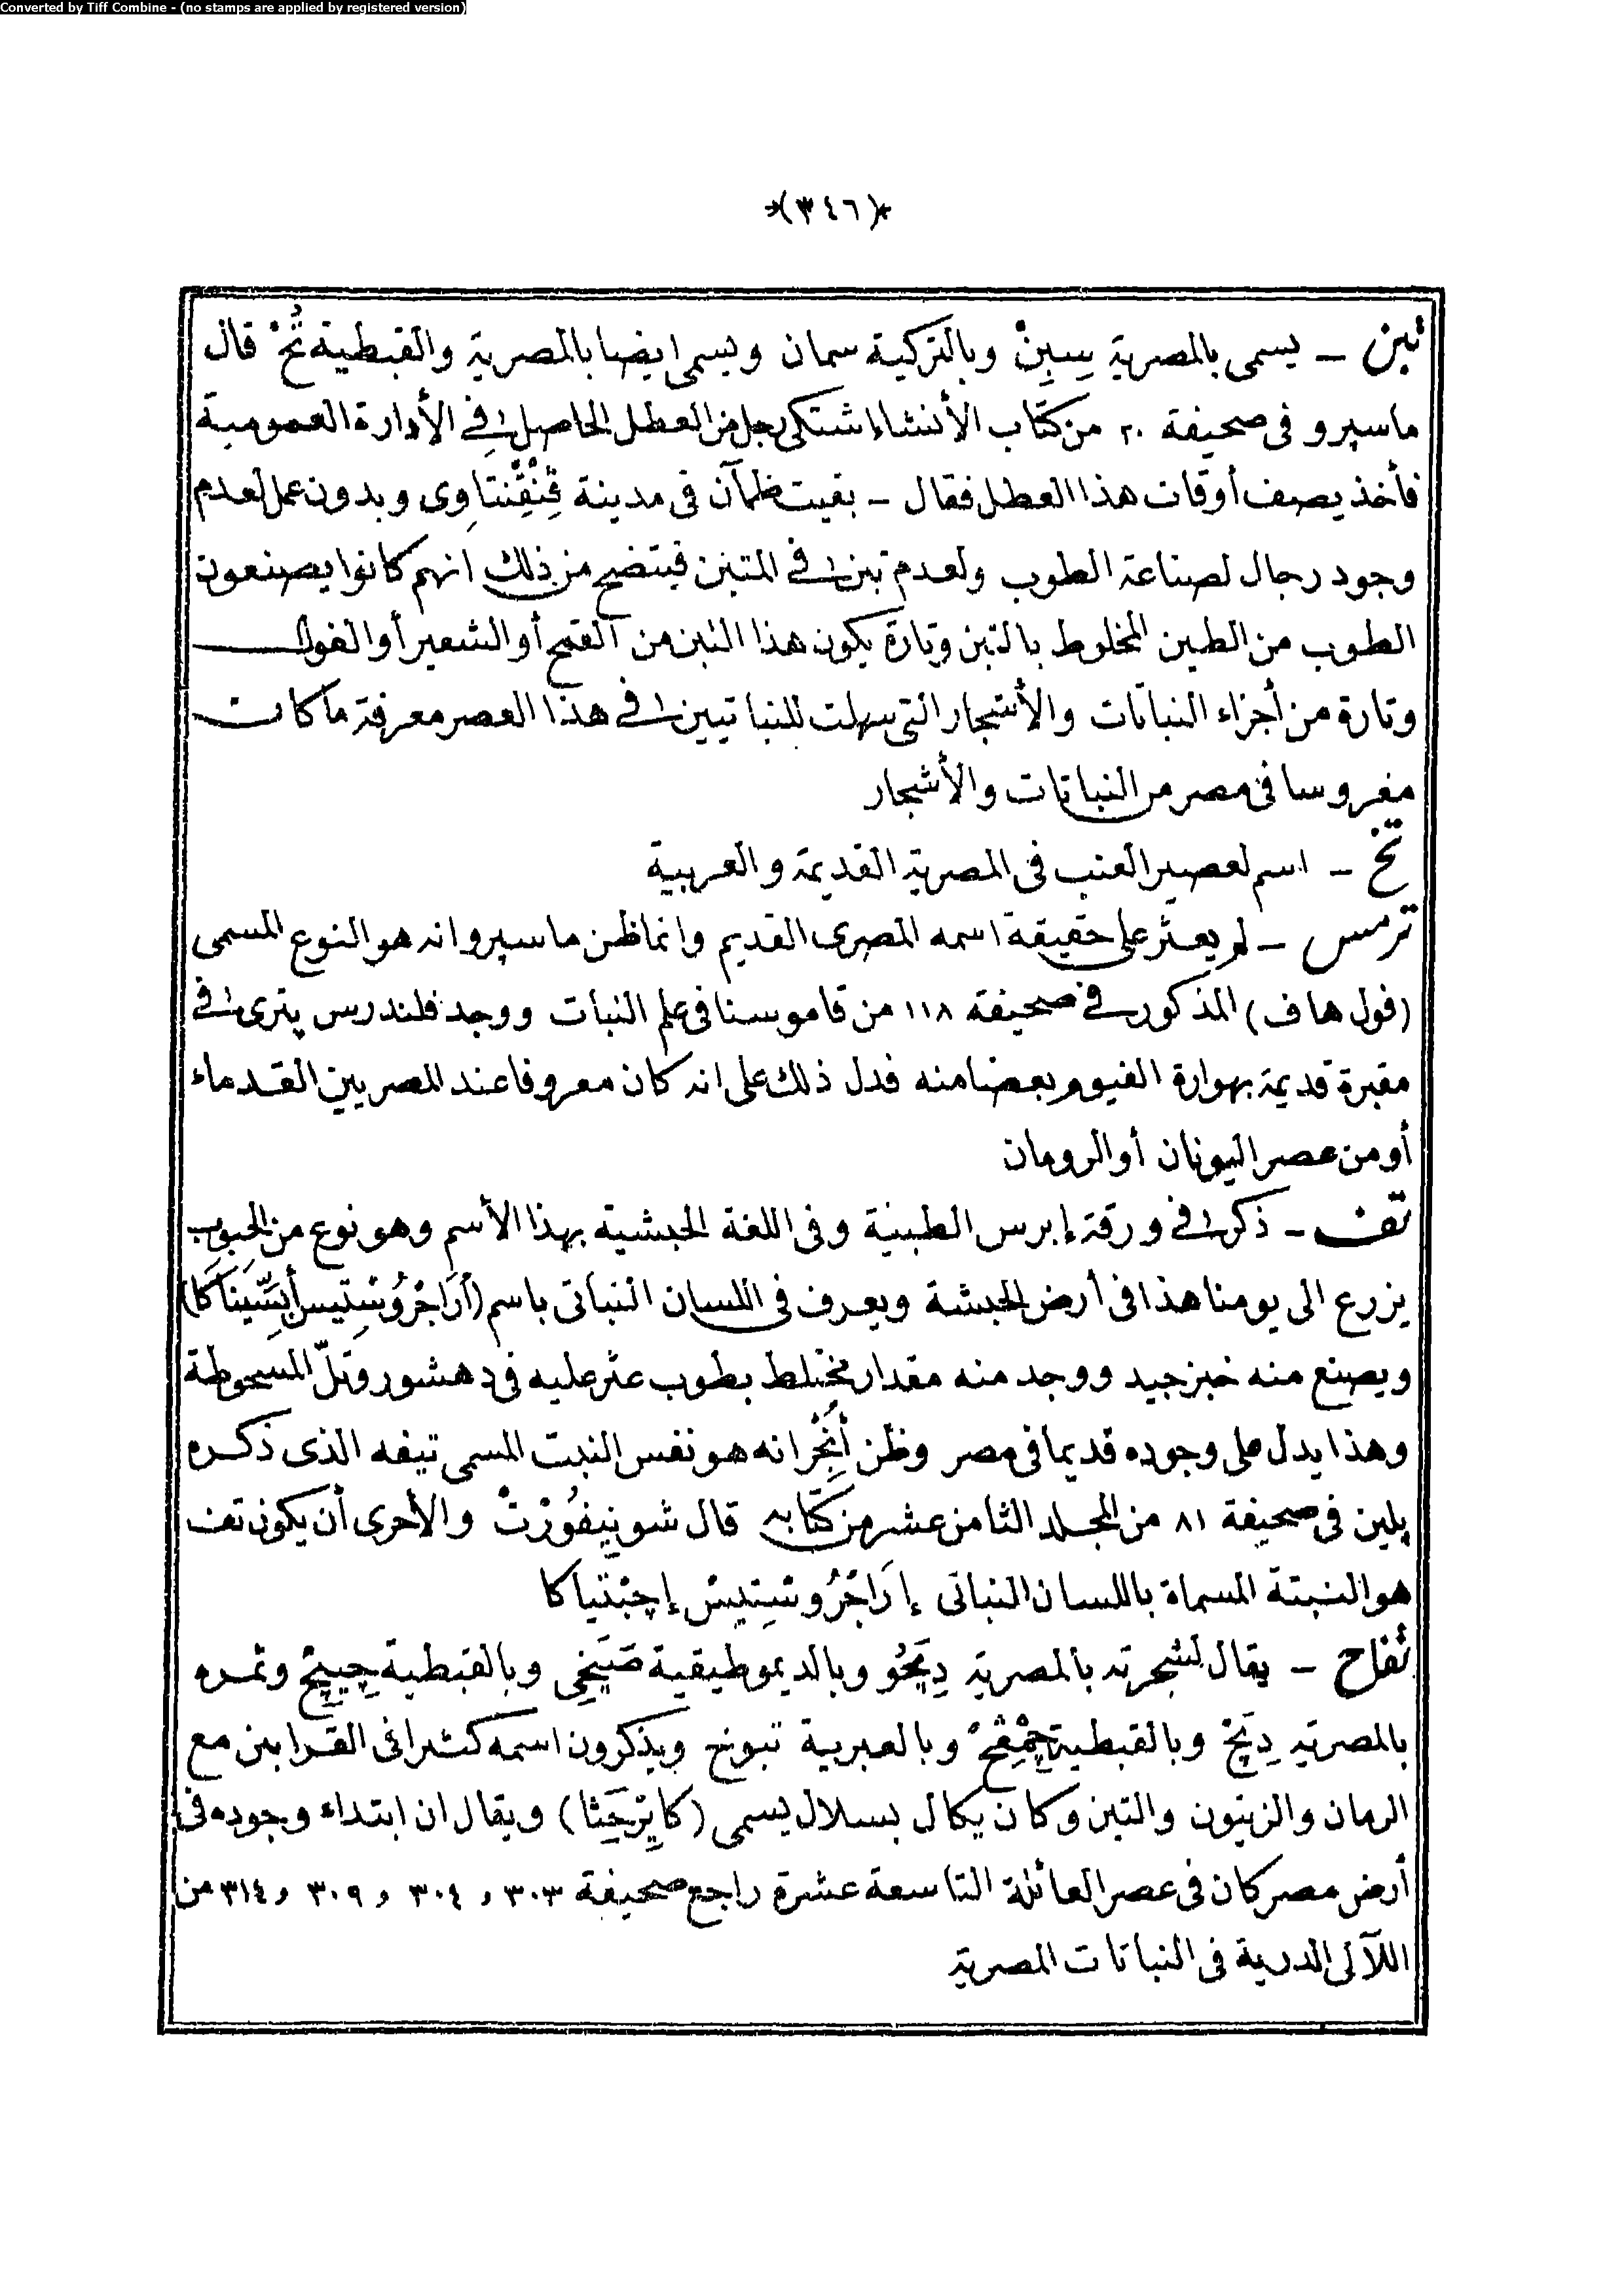 Converted by Tiff Combine - (no stamps are applied by registered version)
*(٣٤٦)*
تبن – يسمى بالمصرية سِبِنْ وبالتركية سمان ويسمى ايضا بالمصرية والقبطية تُحْ قال
ماسپرو فى صحيفة ٢٠ من كتاب الأنشاء اشتكى رجل من العطل الحاصل فى الأدارة العمومية
فأخذ يصف أوقات هذا العطل فقال – بقيت ظمآن فى مدينة قِنْقِنْتاوى وبدون عمل لعدم
وجود رجال لصناعة الطوب ولعدم تبن فى المتبن فيتضح من ذلك انهم كانوا يصنعون
الطوب من الطين المخلوط بالتبن وتارة يكون هذا التبن من القمح أو الشعير أو الفول
وتارة من أجزاء النباتات والأشجار التى سهلت للنباتيين فى هذا العصر معرفة ما كان
مغروسا فى مصر من النباتات والأشجار
تخ – اسم لعصير العنب فى المصرية القديمة والعربية
ترمس – لم يعثر على حقيقة اسمه المصرى القديم وانما ظن ماسپرو انه هو النوع المسمى
(فول هاف) المذكور فى صحيفة ١١٨ من قاموسنا فى علم النبات ووجد فلندرس پترى فى
مقبرة قديمة بهوارة الفيوم بعضا منه فدل ذلك على انه كان معروفا عند المصريين القدماء
أو من عصر اليونان أو الرومان
تف – ذكر فى ورقة إبرس الطبية وفى اللغة الحبشية بهذا الأسم وهو نوع من الحبوب
يزرع الى يومنا هذا فى أرض الحبشة ويعرف فى اللسان النباتى باسم (أَرَاجْرُوسْتِيس أَبِسِّينَاكَا)
ويصنع منه خبز جيد ووجد منه مقدار مختلط بطوب عثر عليه فى دهشور وتلّ المسخوطة
وهذا يدل على وجوده قديما فى مصر وظن أُنْجَرْ انه هو نفس النبت المسمى تيفه الذى ذكره
پلين فى صحيفة ٨١ من المجلد الثامن عشر من كتابه قال شوينفُورْتْ والأحرى أن يكون تف
هو النبتة المسماة باللسان النباتى إرَاجْرُوسْتِيسْ إجِبْتياكا
تفاح – يقال لشجرته بالمصرية دِپَحُو وبالديموطيقية صَپِخِى وبالقبطية چِپِيحْ وثمره
بالمصرية دِپَحْ وبالقبطية چِمْفِحْ وبالعبرية تبوخ ويذكرون اسمه كثيرا فى القرابين مع
الرمان والزيتون والتين وكان يكال بسلال يسمى (كايِرْحِثا) ويقال ان ابتداء وجوده فى
أرض مصر كان فى عصر العائلة التاسعة عشرة راجع صحيفة ٣٠٣ و ٣٠٤ و ٣٠٩ و ٣١٤ من
اللآلى الدرية فى النباتات المصرية